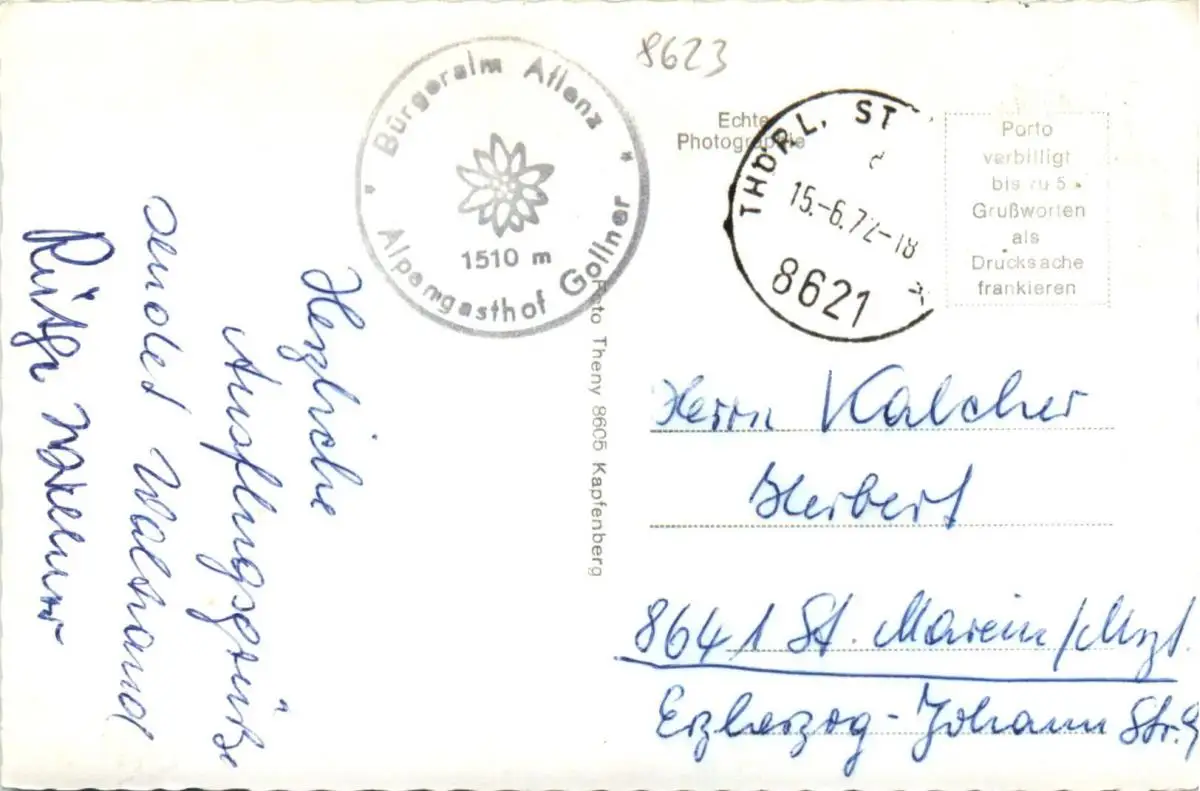 8623
* Bürgeralm Aflenz *
1510 m
Alpengasthof Gollner
Echte
Photographie
THÖRL, ST
15.-6.72-18
8621
Porto
verbilligt
bis zu 5
Grußworten
als
Drucksache
frankieren
Herzliche
Ausflugsgrüße
sendet Waltraud
Foto Theny 8605 Kapfenberg
Herrn Kalcher
Herbert
8641 St. Marein/Mzt.
Erzherzog-Johann Str. 9